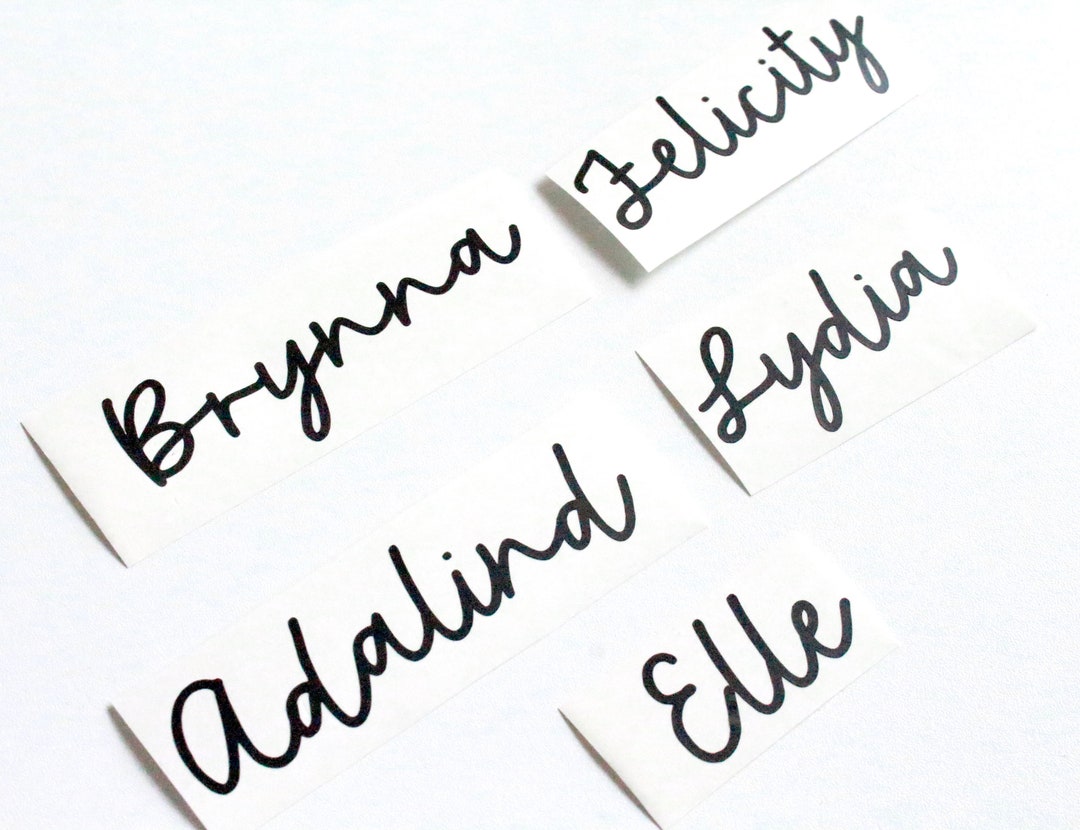 Felicity
Brynna
Lydia
Adalind
Elle